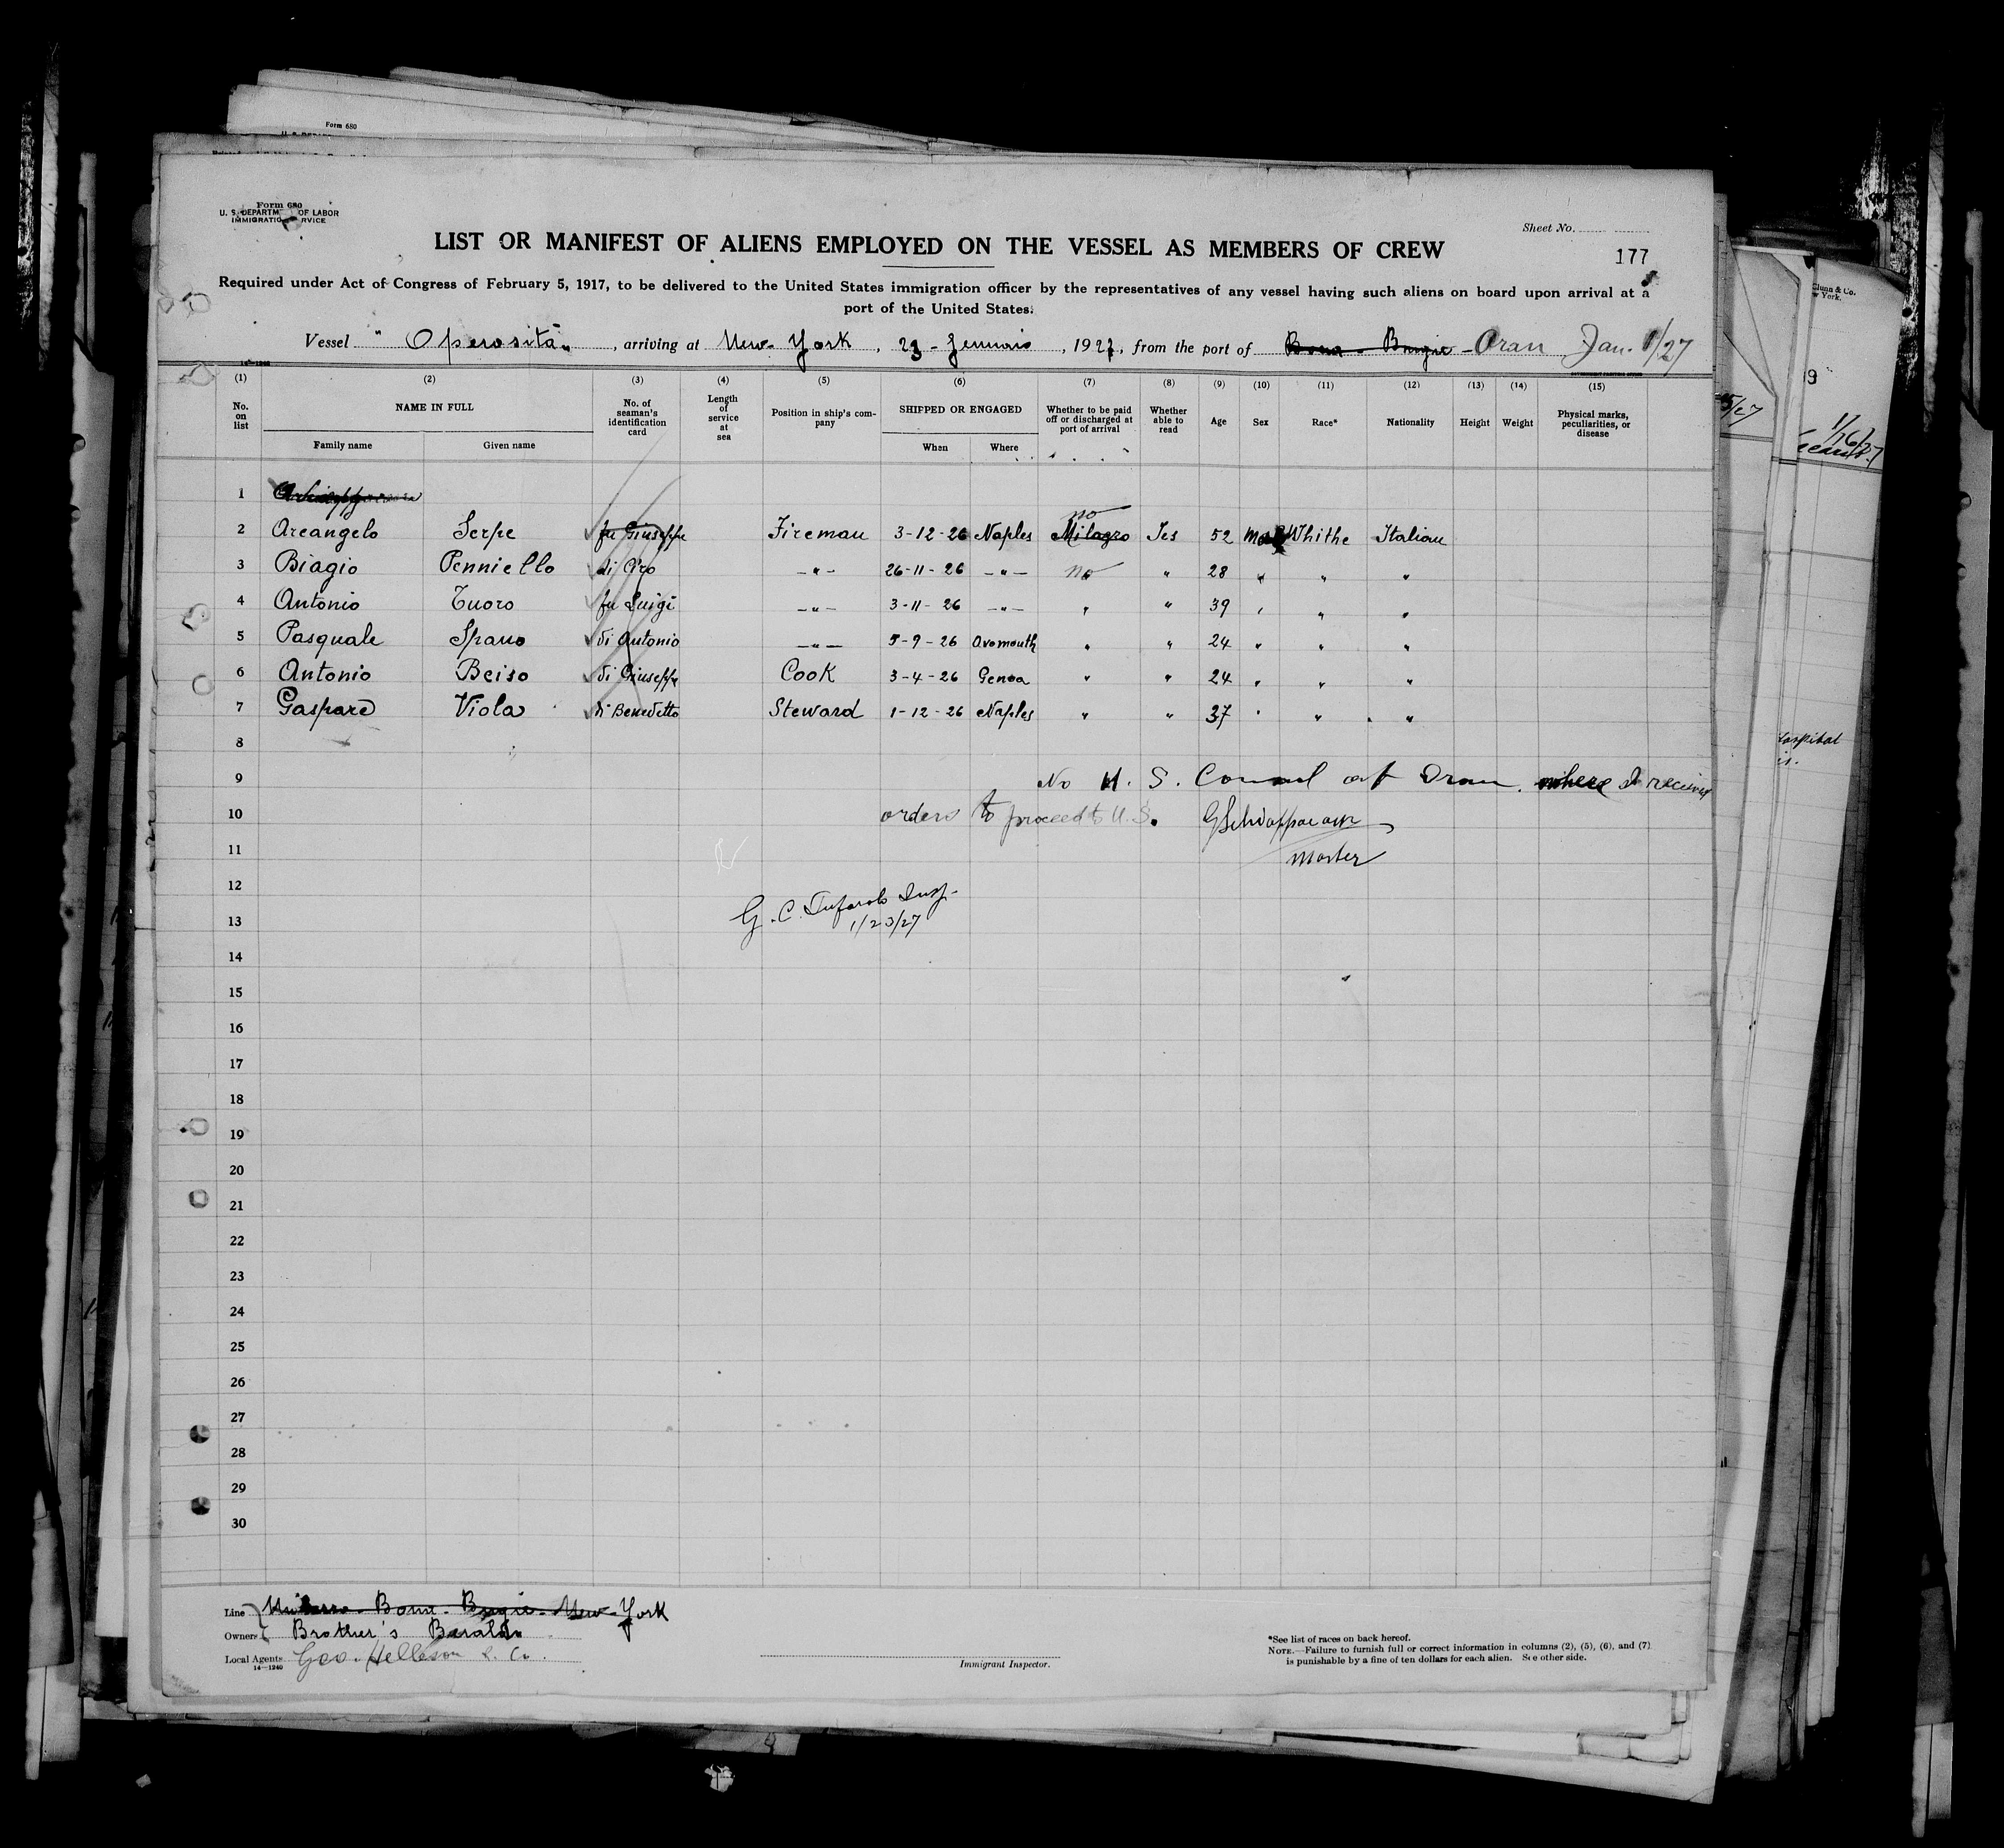 Form 680
Form 680
U. S. DEPARTM OF LABOR
IMMIGRATIO RVICE
Sheet No.
LIST OR MANIFEST OF ALIENS EMPLOYED ON THE VESSEL AS MEMBERS OF CREW
177
Required under Act of Congress of February 5, 1917, to be delivered to the United States immigration officer by the representatives of any vessel having such aliens on board upon arrival at a
port of the United States.
Vessel " Operosità " , arriving at New-York , 23 - Gennaio , 1927, from the port of Bona - Bugie - Oran Jan. 1/27
(1) (2) (3) (4) (5) (6) (7) (8) (9) (10) (11) (12) (13) (14) (15)
No. on list NAME IN FULL Family name Given name No. of seaman's identification card Length of service at sea Position in ship's company SHIPPED OR ENGAGED When Where Whether to be paid off or discharged at port of arrival Whether able to read Age Sex Race* Nationality Height Weight Physical marks, peculiarities, or disease
1
2 Arcangelo Serpe fu Giuseppe Fireman 3-12-26 Naples Milagro no Yes 52 Whithe Italian
3 Biagio Penniello di Ciro -"- 26-11-26 -"- no " 28 " " "
4 Antonio Tuoro fu Luigi -"- 3-11-26 -"- " " 39 " " "
5 Pasquale Spano di Antonio -"- 5-9-26 Avomouth " " 24 " " "
6 Antonio Beiso di Giuseppe Cook 3-4-26 Genoa " " 24 " " "
7 Gaspare Viola di Benedetto Steward 1-12-26 Naples " " 37 " " "
8
9 No U. S. Consul at Oran. where I received
10 orders to proceed to U.S.
11 Master
12 G. C. Insp.
13 1/23/27
14
15
16
17
18
19
20
21
22
23
24
25
26
27
28
29
30
Line Bona - Bugie - New-York
Owners Brother's
Local Agents Geo. & Co.
14—1240
Immigrant Inspector.
*See list of races on back hereof.
NOTE.—Failure to furnish full or correct information in columns (2), (5), (6), and (7)
is punishable by a fine of ten dollars for each alien. See other side.